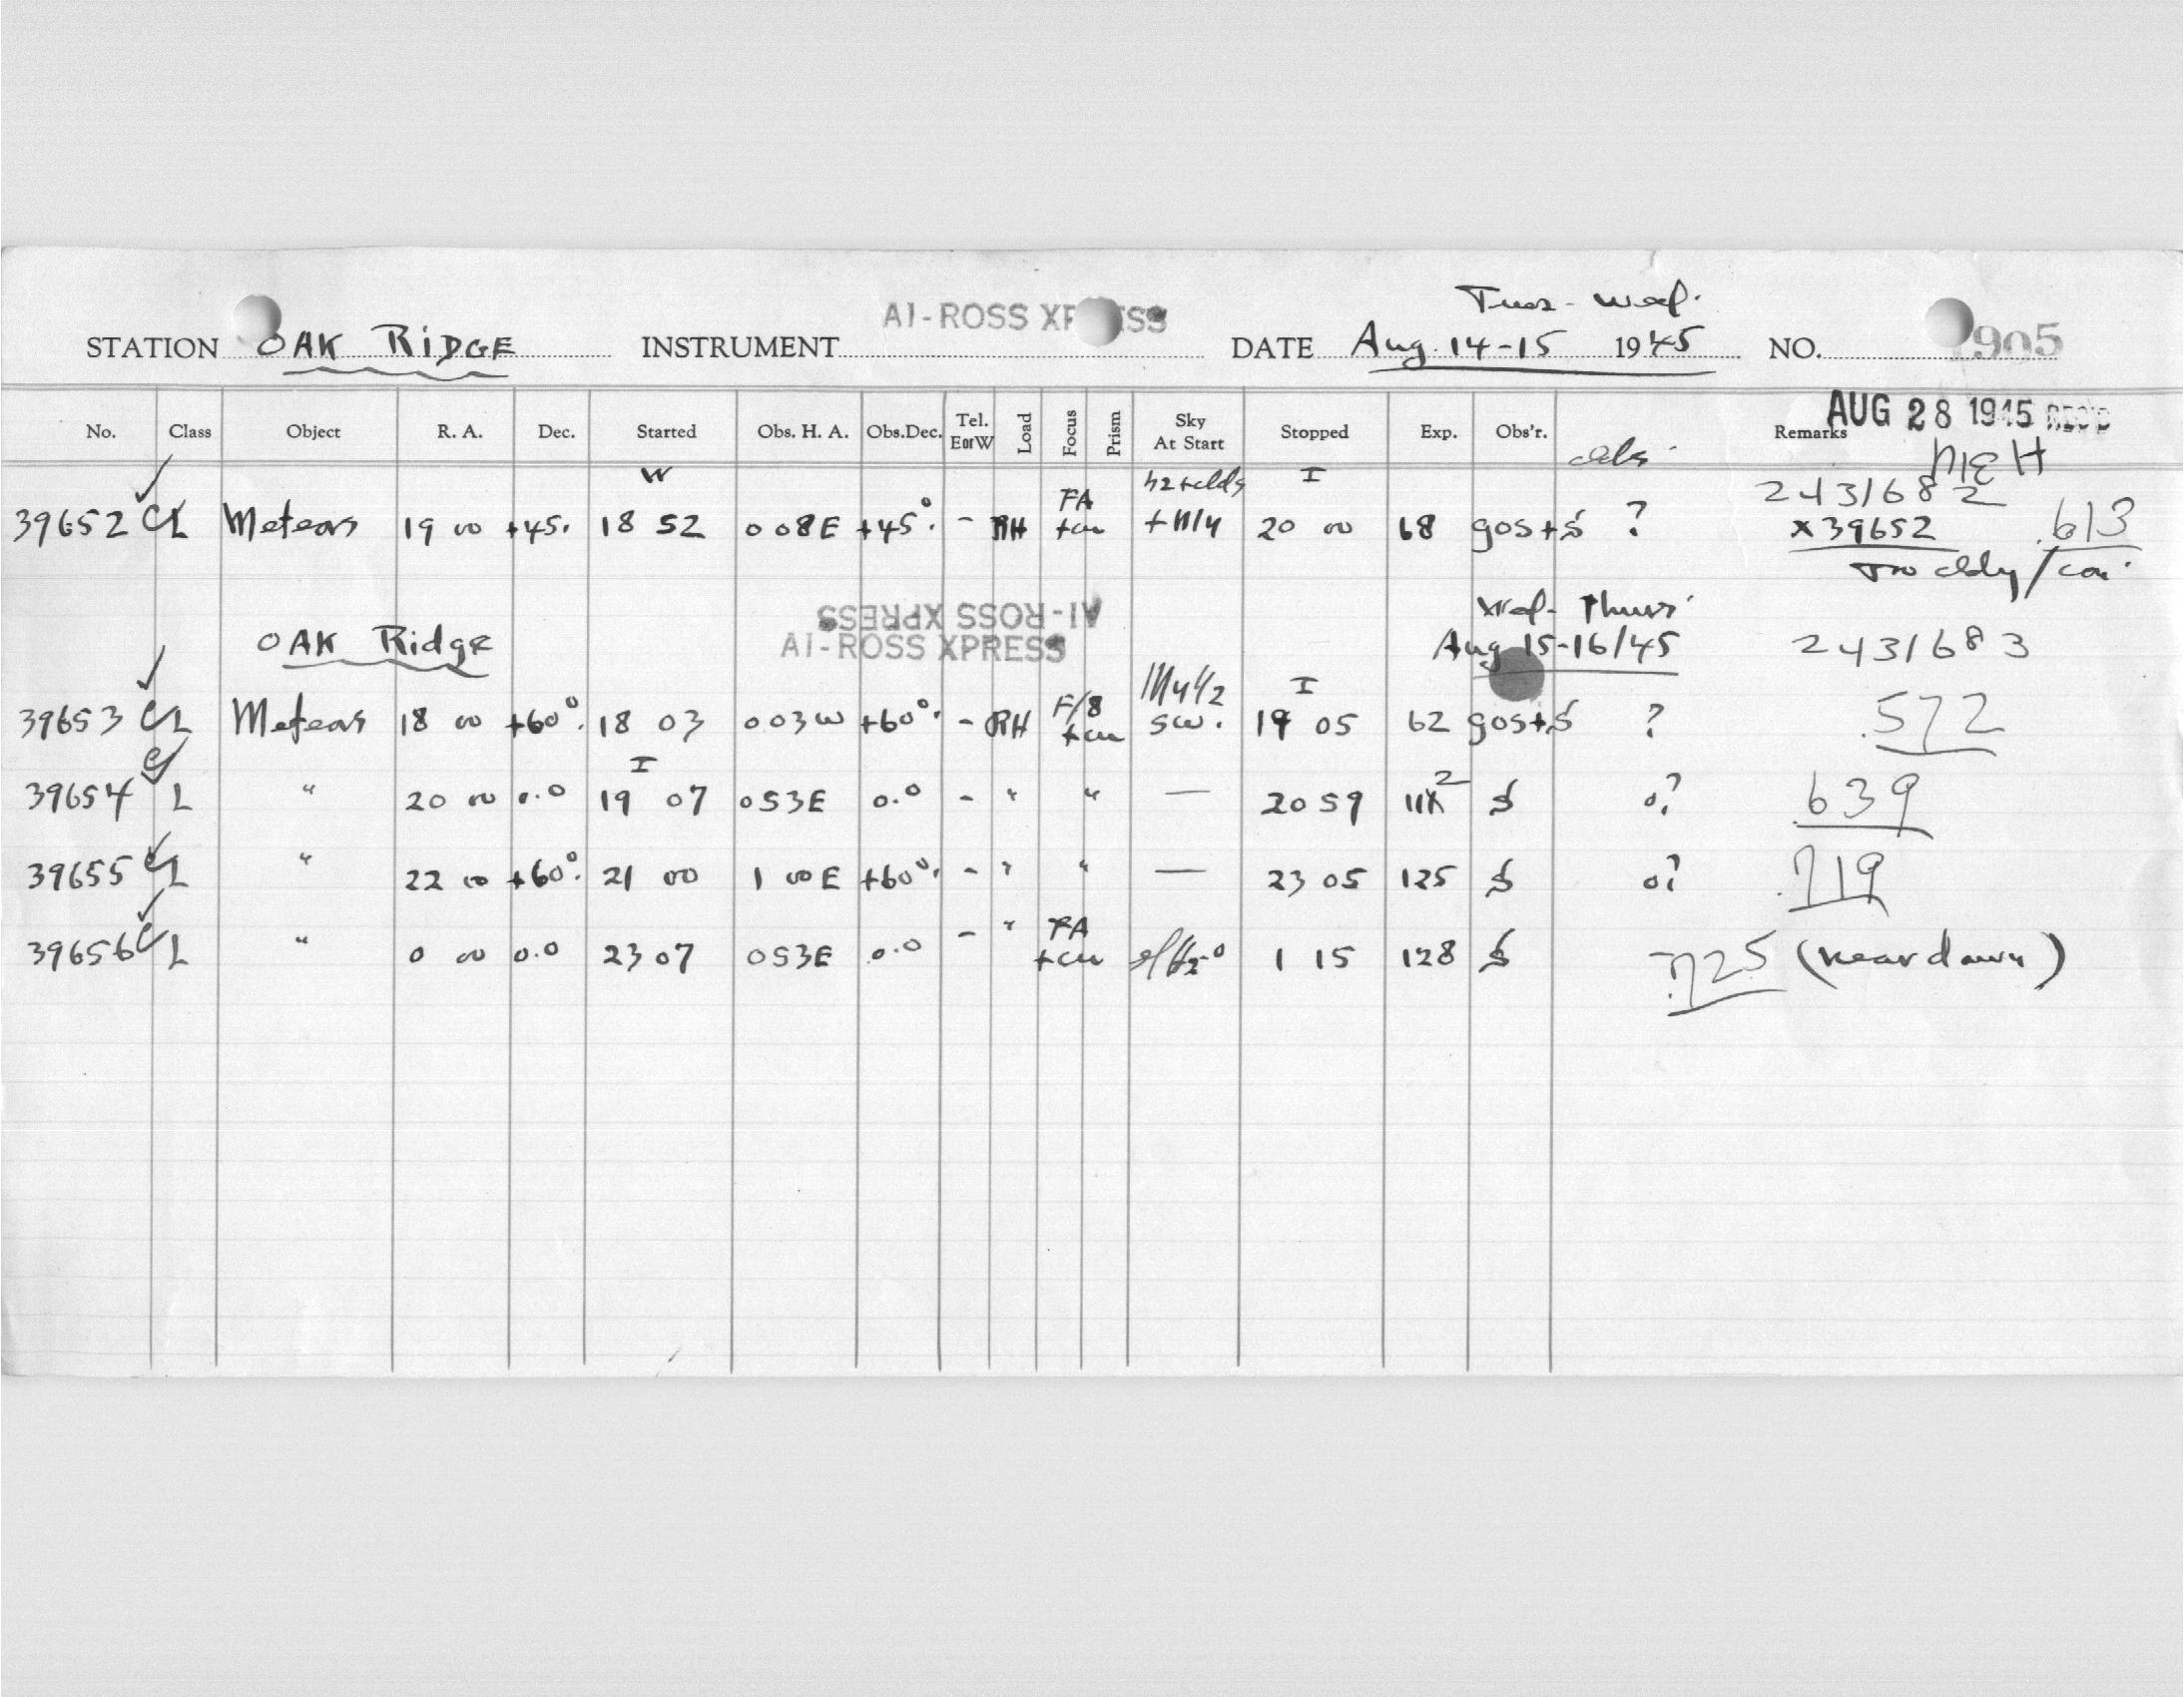 Tues - Wed.
STATION OAK RIDGE INSTRUMENT AI-ROSS XPRESS DATE Aug. 14-15 1945 NO. 905
AUG 28 1945 REC'D
No. Class Object R. A. Dec. Started Obs. H. A. Obs.Dec. Tel. E or W Load Focus Prism Sky At Start Stopped Exp. Obs'r. Remarks
W I
2431682
39652 CL Meteors 19 00 +45. 18 52 0 08E +45°. - RH FA 20 00 68 gos+S ? x39652 .613
AI-ROSS XPRESS
Wed - Thurs
OAK Ridge AI-ROSS XPRESS Aug 15-16/45 2431683
I
39653 CL Meteors 18 00 +60°. 18 03 0 03W +60°. - RH F/8 SW. 19 05 62 gos+S ? .572
I
39654 CL " 20 00 0.0 19 07 0 53E 0.0 - " " — 20 59 112 S 0? .639
39655 CL " 22 00 +60°. 21 00 1 00E +60°. - " " — 23 05 125 S 0? .719
39656 CL " 0 00 0.0 23 07 0 53E 0.0 - " FA 1 15 128 S .725 (near dawn)